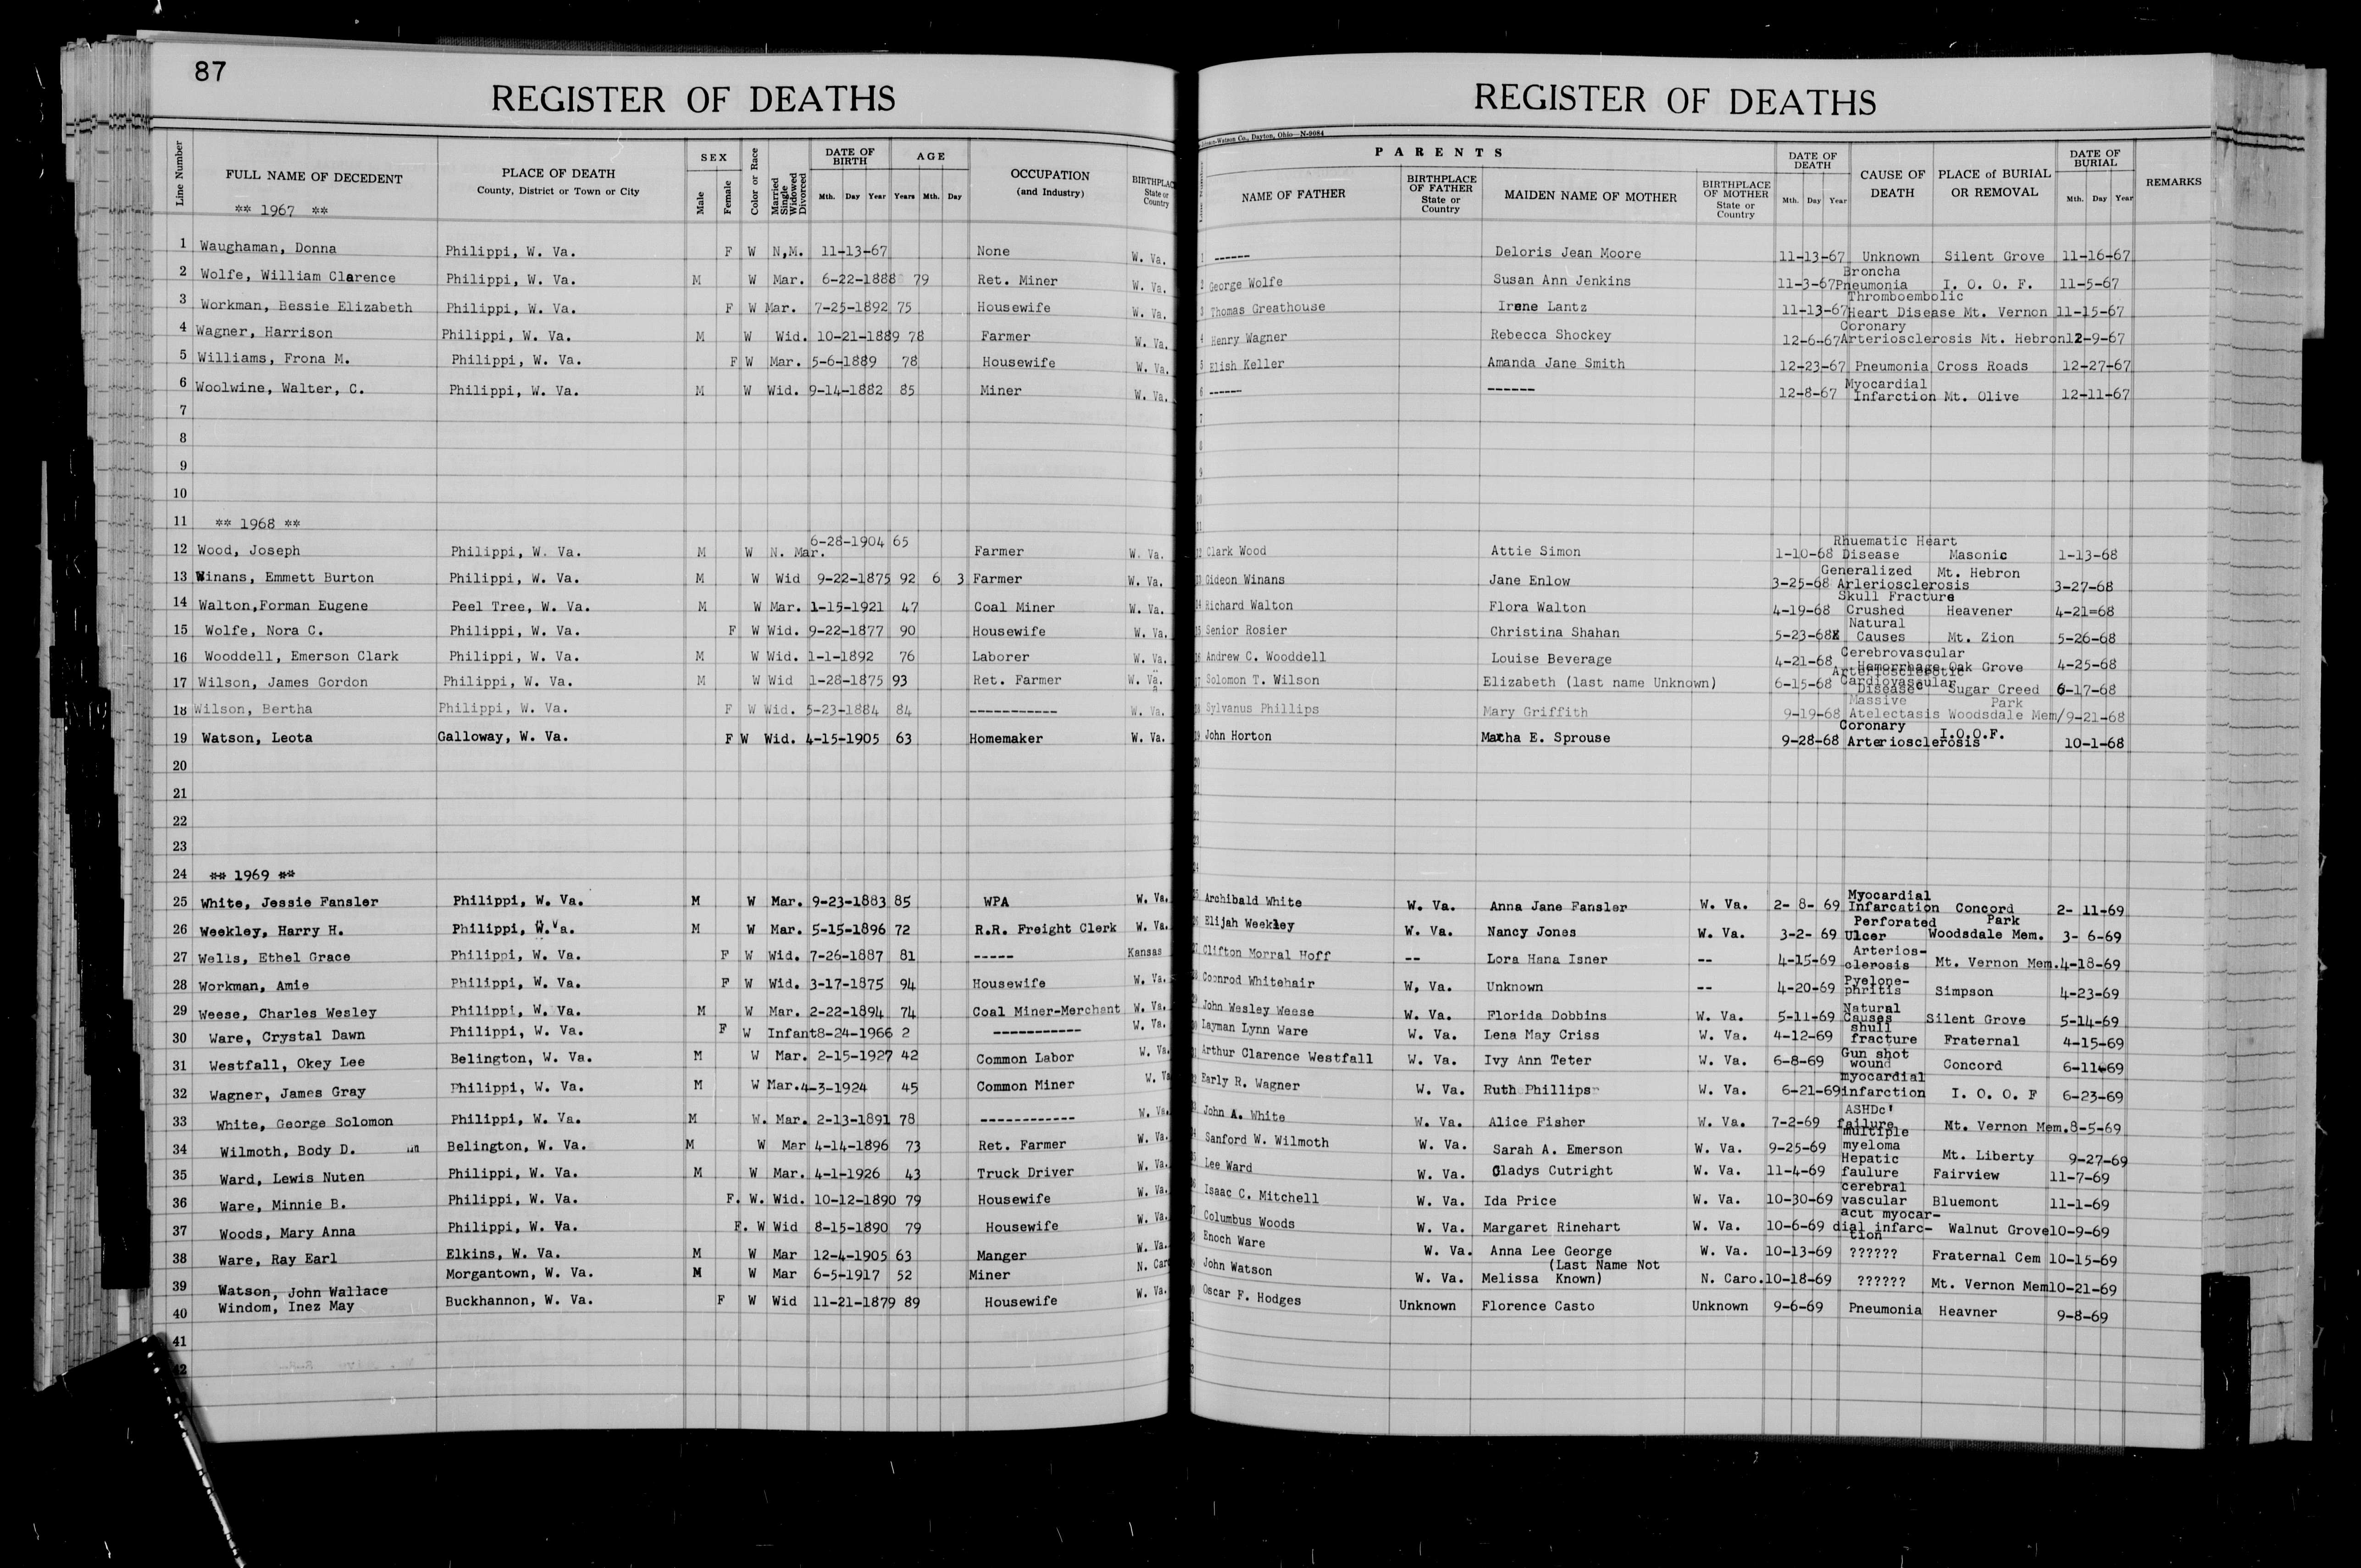 87
REGISTER OF DEATHS
REGISTER OF DEATHS
Line Number FULL NAME OF DECEDENT PLACE OF DEATH County, District or Town or City SEX Male Female Color or Race Married Single Widowed Divorced DATE OF BIRTH Mth. Day Year AGE Years Mth. Day OCCUPATION (and Industry) State or Country
Watson Co., Dayton, Ohio—N-9084
PARENTS NAME OF FATHER BIRTHPLACE OF FATHER State or Country MAIDEN NAME OF MOTHER BIRTHPLACE OF MOTHER State or Country DATE OF DEATH Mth. Day Year CAUSE OF DEATH PLACE of BURIAL OR REMOVAL DATE OF BURIAL Mth. Day Year REMARKS
** 1967 **
1 Waughaman, Donna Philippi, W. Va. F W N,M. 11-13-67 None W. Va. 1 ------ Deloris Jean Moore 11-13-67 Unknown Silent Grove 11-16-67
2 Wolfe, William Clarence Philippi, W. Va. M W Mar. 6-22-1888 79 Ret. Miner W. Va. 2 George Wolfe Susan Ann Jenkins 11-3-67 Broncha Pneumonia I. O. O. F. 11-5-67
3 Workman, Bessie Elizabeth Philippi, W. Va. F W Mar. 7-25-1892 75 Housewife W. Va. 3 Thomas Greathouse Irene Lantz 11-13-67 Thromboembolic Heart Disease Mt. Vernon 11-15-67
4 Wagner, Harrison Philippi, W. Va. M W Wid. 10-21-1889 78 Farmer W. Va. 4 Henry Wagner Rebecca Shockey 12-6-67 Coronary Arteriosclerosis Mt. Hebron 12-9-67
5 Williams, Frona M. Philippi, W. Va. F W Mar. 5-6-1889 78 Housewife W. Va. 5 Elish Keller Amanda Jane Smith 12-23-67 Pneumonia Cross Roads 12-27-67
6 Woolwine, Walter, C. Philippi, W. Va. M W Wid. 9-14-1882 85 Miner W. Va. 6 ------ ------ 12-8-67 Myocardial Infarction Mt. Olive 12-11-67
7
8
9
10
11 ** 1968 **
12 Wood, Joseph Philippi, W. Va. M W N. Mar. 6-28-1904 65 Farmer W. Va. 12 Clark Wood Attie Simon 1-10-68 Rhuematic Heart Disease Masonic 1-13-68
13 Winans, Emmett Burton Philippi, W. Va. M W Wid 9-22-1875 92 6 3 Farmer W. Va. 13 Gideon Winans Jane Enlow 3-25-68 Generalized Arleriosclerosis Mt. Hebron 3-27-68
14 Walton,Forman Eugene Peel Tree, W. Va. M W Mar. 1-15-1921 47 Coal Miner W. Va. 14 Richard Walton Flora Walton 4-19-68 Skull Fracture Crushed Heavener 4-21=68
15 Wolfe, Nora C. Philippi, W. Va. F W Wid. 9-22-1877 90 Housewife W. Va. 15 Senior Rosier Christina Shahan 5-23-68 Natural Causes Mt. Zion 5-26-68
16 Wooddell, Emerson Clark Philippi, W. Va. M W Wid. 1-1-1892 76 Laborer W. Va. 16 Andrew C. Wooddell Louise Beverage 4-21-68 Cerebrovascular Hemorrhage Oak Grove 4-25-68
17 Wilson, James Gordon Philippi, W. Va. M W Wid 1-28-1875 93 Ret. Farmer W. Va. 17 Solomon T. Wilson Elizabeth (last name Unknown) 6-15-68 Arteriosclerotic Cardiovascular Disease Sugar Creed 6-17-68
18 Wilson, Bertha Philippi, W. Va. F W Wid. 5-23-1884 84 ----------- W. Va. 18 Sylvanus Phillips Mary Griffith 9-19-68 Massive Atelectasis Woodsdale Mem/ Park 9-21-68
19 Watson, Leota Galloway, W. Va. F W Wid. 4-15-1905 63 Homemaker W. Va. 19 John Horton Martha E. Sprouse 9-28-68 Coronary Arteriosclerosis I.O.O.F. 10-1-68
20
21
22
23
24 ** 1969 **
25 White, Jessie Fansler Philippi, W. Va. M W Mar. 9-23-1883 85 WPA W. Va. 25 Archibald White W. Va. Anna Jane Fansler W. Va. 2- 8- 69 Myocardial Infarcation Concord 2- 11-69
26 Weekley, Harry H. Philippi, W. Va. M W Mar. 5-15-1896 72 R.R. Freight Clerk W. Va. 26 Elijah Weekley W. Va. Nancy Jones W. Va. 3-2- 69 Perforated Ulcer Woodsdale Mem. Park 3- 6-69
27 Wells, Ethel Grace Philippi, W. Va. F W Wid. 7-26-1887 81 ----- Kansas 27 Clifton Morral Hoff -- Lora Hana Isner -- 4-15-69 Arterios-clerosis Mt. Vernon Mem. 4-18-69
28 Workman, Amie Philippi, W. Va. F W Wid. 3-17-1875 94 Housewife W. Va. 28 Coonrod Whitehair W, Va. Unknown -- 4-20-69 Pyelone-phritis Simpson 4-23-69
29 Weese, Charles Wesley Philippi, W. Va. M W Mar. 2-22-1894 74 Coal Miner-Merchant W. Va. 29 John Wesley Weese W. Va. Florida Dobbins W. Va. 5-11-69 Natural Causes Silent Grove 5-14-69
30 Ware, Crystal Dawn Philippi, W. Va. F W Infant 8-24-1966 2 ----------- W. Va. 30 Layman Lynn Ware W. Va. Lena May Criss W. Va. 4-12-69 shull fracture Fraternal 4-15-69
31 Westfall, Okey Lee Belington, W. Va. M W Mar. 2-15-1927 42 Common Labor W. Va. 31 Arthur Clarence Westfall W. Va. Ivy Ann Teter W. Va. 6-8-69 Gun shot wound Concord 6-11-69
32 Wagner, James Gray Philippi, W. Va. M W Mar. 4-3-1924 45 Common Miner W. Va 32 Early R. Wagner W. Va. Ruth Phillips W. Va. 6-21-69 myocardial infarction I. O. O. F 6-23-69
33 White, George Solomon Philippi, W. Va. M W. Mar. 2-13-1891 78 ------------ W. Va. 33 John A. White W. Va. Alice Fisher W. Va. 7-2-69 ASHDc' failure Mt. Vernon Mem. 8-5-69
34 Wilmoth, Body D. Belington, W. Va. M W Mar 4-14-1896 73 Ret. Farmer W. Va. 34 Sanford W. Wilmoth W. Va. Sarah A. Emerson W. Va. 9-25-69 multiple myeloma Mt. Liberty 9-27-69
35 Ward, Lewis Nuten Philippi, W. Va. M W Mar. 4-1-1926 43 Truck Driver W. Va. 35 Lee Ward W. Va. Gladys Cutright W. Va. 11-4-69 Hepatic faulure Fairview 11-7-69
36 Ware, Minnie B. Philippi, W. Va. F. W. Wid. 10-12-1890 79 Housewife W. Va. 36 Isaac C. Mitchell W. Va. Ida Price W. Va. 10-30-69 cerebral vascular Bluemont 11-1-69
37 Woods, Mary Anna Philippi, W. Va. F. W Wid 8-15-1890 79 Housewife W. Va. 37 Columbus Woods W. Va. Margaret Rinehart W. Va. 10-6-69 acut myocar-dial infarc-tion Walnut Grove 10-9-69
38 Ware, Ray Earl Elkins, W. Va. M W Mar 12-4-1905 63 Manger W. Va. 38 Enoch Ware W. Va. Anna Lee George W. Va. 10-13-69 ?????? Fraternal Cem 10-15-69
39 Watson, John Wallace Morgantown, W. Va. M W Mar 6-5-1917 52 Miner N. Car 39 John Watson W. Va. Melissa (Last Name Not Known) N. Caro. 10-18-69 ?????? Mt. Vernon Mem 10-21-69
40 Windom, Inez May Buckhannon, W. Va. F W Wid 11-21-1879 89 Housewife W. Va. 40 Oscar F. Hodges Unknown Florence Casto Unknown 9-6-69 Pneumonia Heavner 9-8-69
41
42